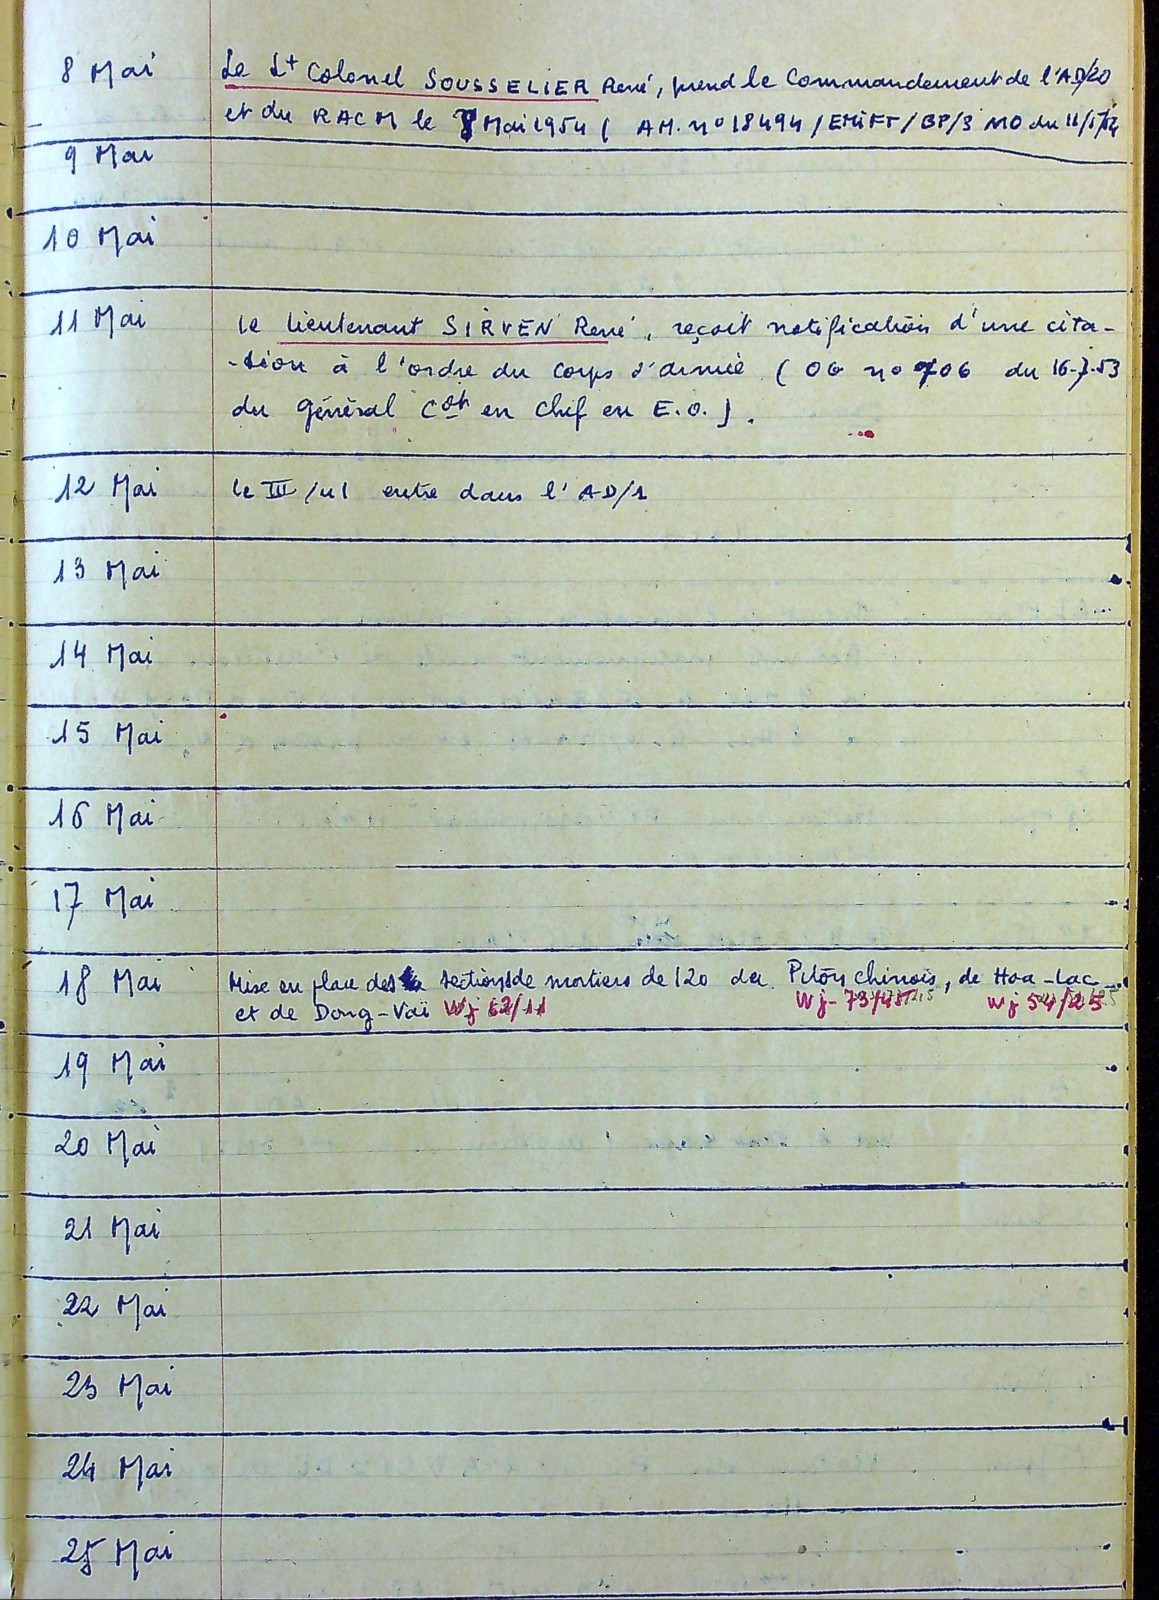 8 Mai Le Lt Colonel SOUSSELIER René, prend le Commandement de l'AD/20
et du RACM le 8 Mai 1954 ( AM. n° 18494 / EMIFT / BP/3 MO du 11/5/54
9 Mai
10 Mai
11 Mai le lieutenant SIRVEN René, reçoit notification d'une cita-
-tion à l'ordre du corps d'armée ( OG n° 706 du 16-7-53
du général Cdt en chef en E.O.).
12 Mai le III/41 entre dans l'AD/1
13 Mai
14 Mai
15 Mai
16 Mai
17 Mai
18 Mai Mise en place des sections de mortiers de 120 du Piton chinois, de Hoa-Lac
et de Dong-Vaï Wj 62/11 Wj-73/45 Wj 54/25
19 Mai
20 Mai
21 Mai
22 Mai
23 Mai
24 Mai
25 Mai